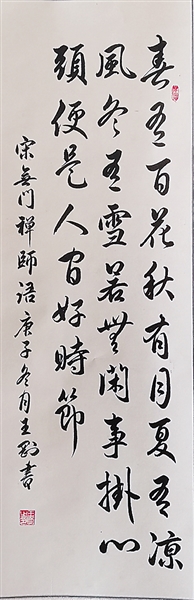 春有百花秋有月夏有凉
風冬有雪若無閑事掛心
頭便是人間好時節
宋無門禪師語庚子冬月王書